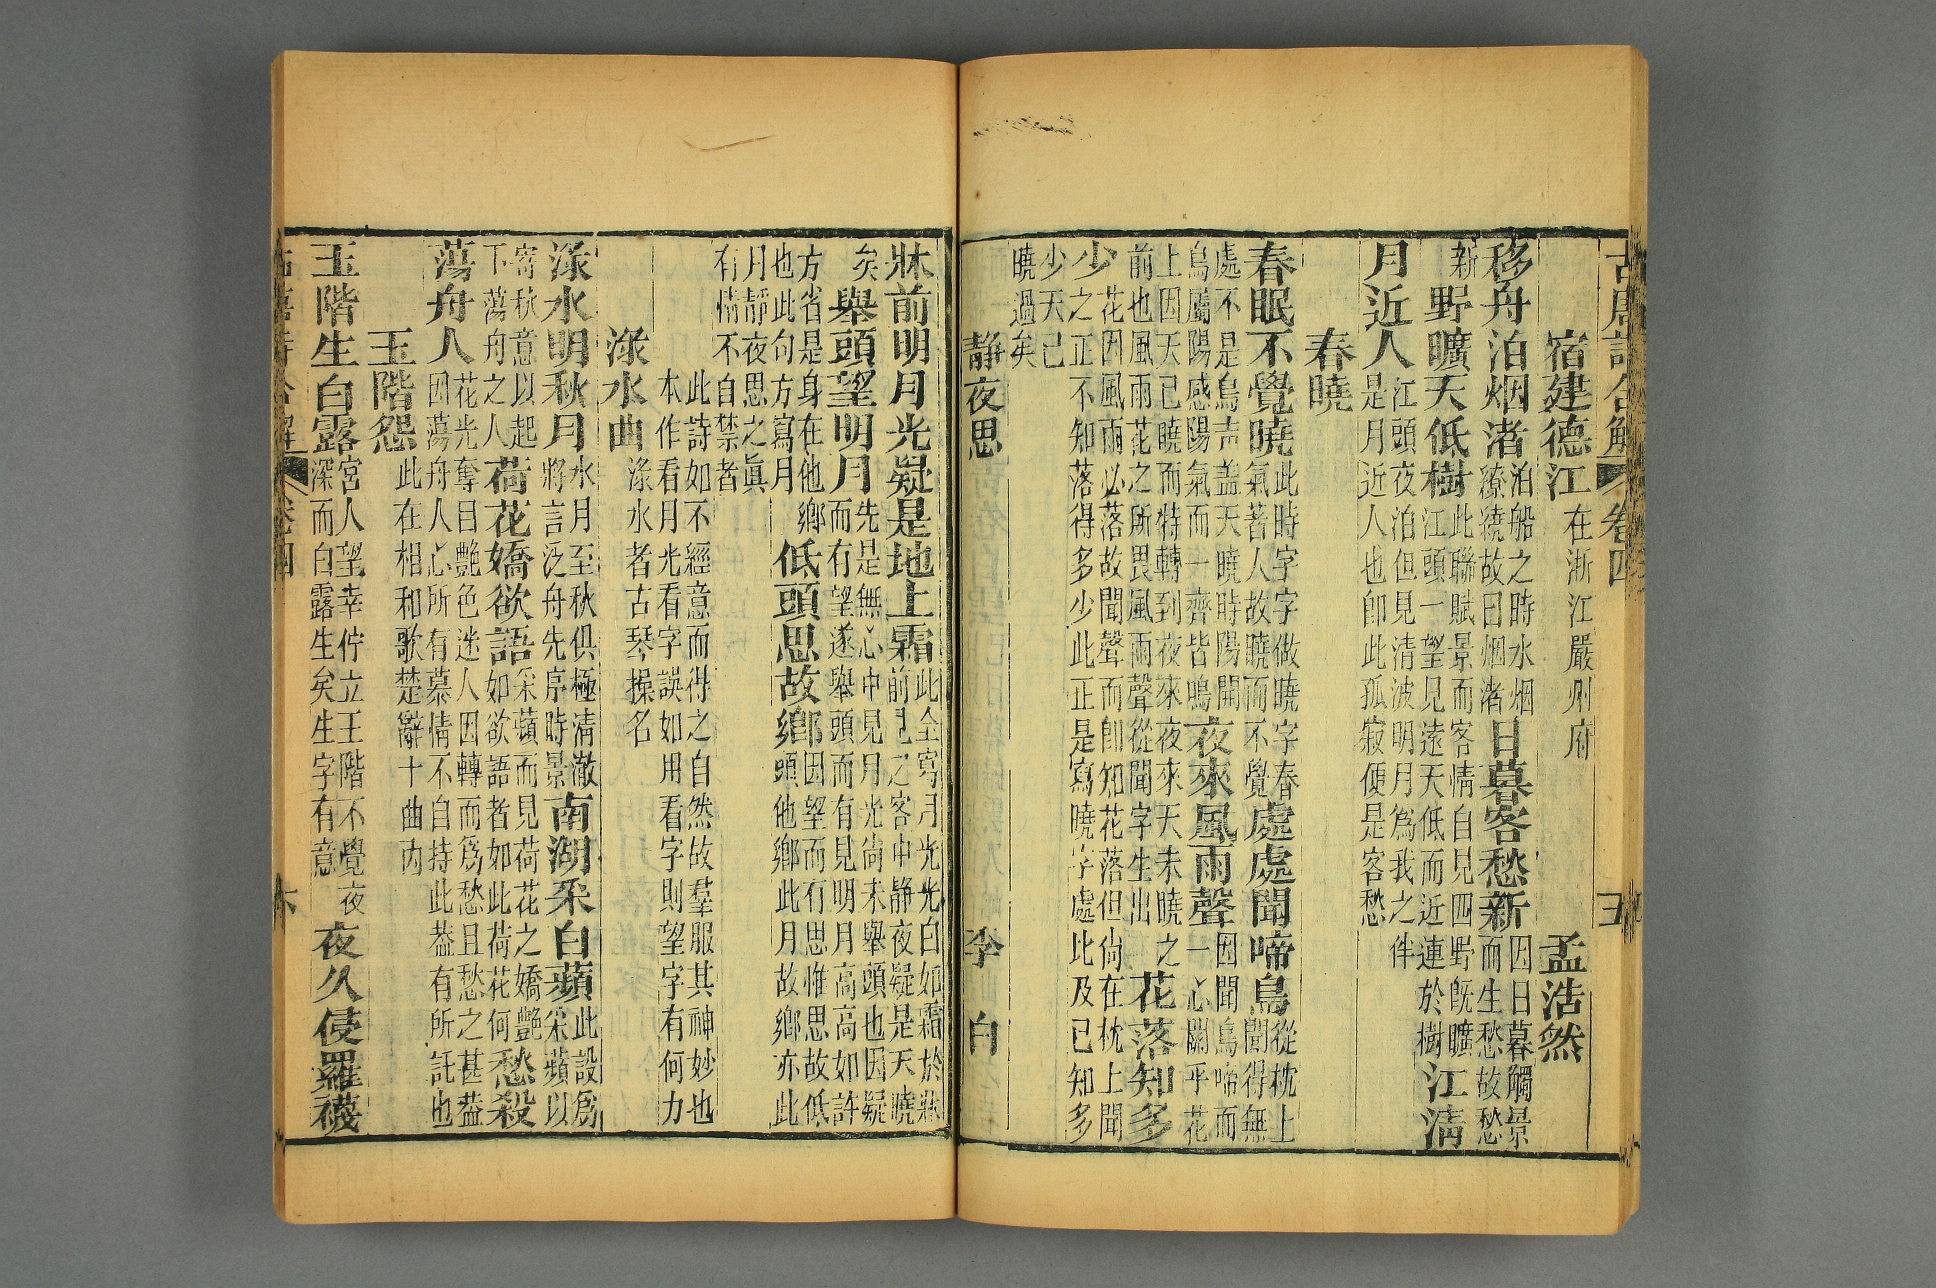 古唐詩合解 卷四 五
宿建德江在浙江嚴州府 孟浩然
移舟泊烟渚泊船之時水烟繚繞故曰烟渚日暮客愁新因日暮觸景而生愁故愁
新野曠天低樹此聯賦景而客情自見四野旣曠江頭一望見遠天低而近連於樹江淸
月近人江頭夜泊但見清波明月爲我之伴是月近人也卽此孤寂便是客愁
春曉
春眠不覺曉此時字字做曉字春氣著人故曉而不覺處處聞啼鳥從枕上聞得無
處不是鳥声盖天曉時陽開鳥屬陽感陽氣而一齊皆鳴夜來風雨聲因聞鳥啼而一心關乎花
上因天已曉而特轉到夜來夜來天未曉之前也風雨花之所畏風雨聲從聞字生出花落知多
少花因風雨必落故聞聲而卽知花落但尙在枕上聞之正不知落得多少此正是寫曉字處比及已知多
少天已曉過矣
靜夜思 李白
牀前明月光疑是地上霜此全寫月光光白如霜於牀前見之客中靜夜疑是天曉
矣舉頭望明月先是無心中見月光尙未舉頭也因疑而有望遂舉頭而有見明月高高如許
方省是身在他鄉也此句方寫月低頭思故鄉因望而有思惟思故低頭他鄉此月故鄉亦此
月靜夜思之眞有情不自禁者
此詩如不經意而得之自然故羣服其神妙也
本作看月光看字誤如用看字則望字有何力
淥水曲淥水者古琴操名
淥水明秋月水月至秋俱極清澈將言泛舟先序時景南湖采白蘋此設爲采蘋以
寄秋意以起下蕩舟之人荷花嬌欲語采蘋而見荷花之嬌艷如欲語者如此荷花何愁殺
蕩舟人花光奪目艷色迷人因轉而爲愁且愁之甚益因蕩舟人心所有慕情不自持此葢有所託也
玉階怨此在相和歌楚辭十曲內
玉階生白露宮人望幸佇立玉階不覺夜深而白露生矣生字有意夜久侵羅襪
卷四 六